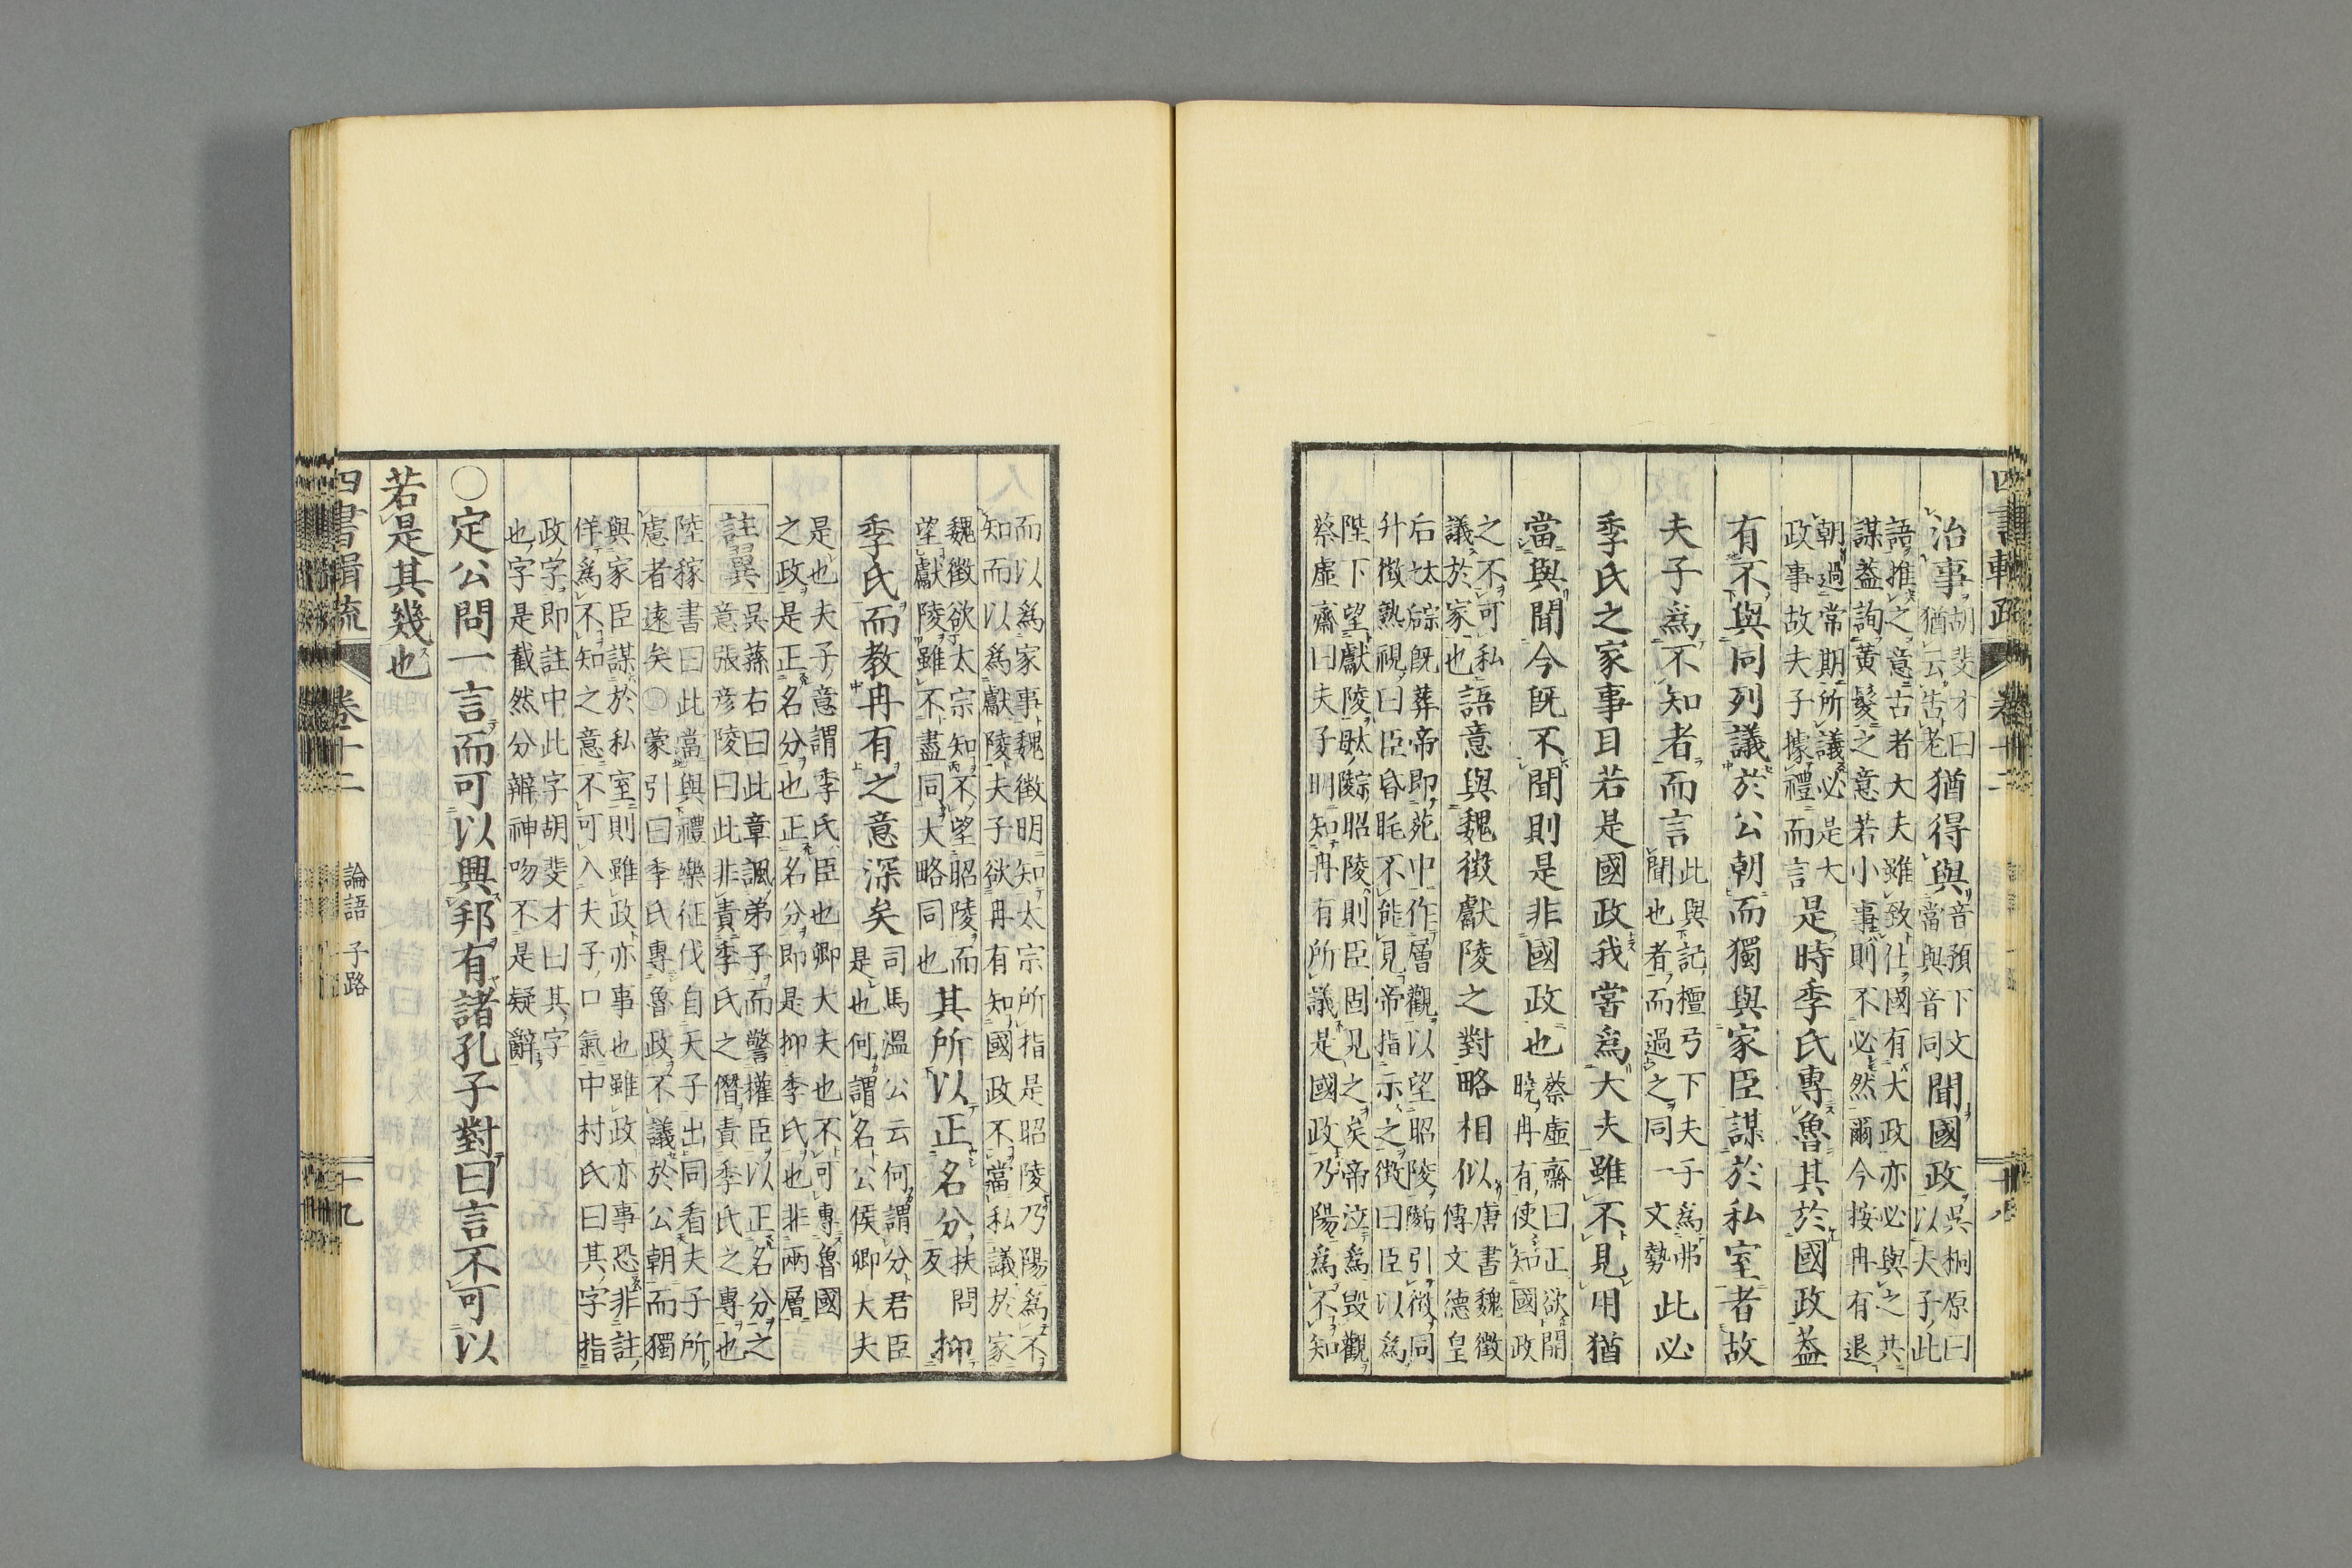 四書輯疏 卷十二
治事胡斐才曰
猶云告老猶得與音預下文
當與音同聞國政吳桐原曰
以夫子此
語推之意古者大夫雖致仕國有大政亦必與之共
謀葢詢黃髮之意若小事則不必然爾今按冉有退
朝過常期所議必是大
政事故夫子據禮而言是時季氏專魯其於國政葢
有不與同列議於公朝而獨與家臣謀於私室者故
夫子爲不知者而言此與記檀弓下夫子爲弗
聞也者而過之同一文勢此必
季氏之家事耳若是國政我嘗爲大夫雖不見用猶
當與聞今旣不聞則是非國政也蔡虛齋曰正欲開
曉冉有使知國政
之不可私
議於家也語意與魏徵獻陵之對略相似唐書魏徵
傳文德皇
后旣葬帝即苑中作層觀以望昭陵引徵同
升徵熟視曰臣昏眊不能見帝指示之徵曰臣以爲
陛下望獻陵昭陵則臣固見之矣帝泣爲毀觀
蔡虛齋曰夫子明知冉有所議是國政乃陽爲不知
而以爲家事魏徵明知太宗所指是昭陵乃陽爲不
知而以爲獻陵夫子欲冉有知國政不當私議於家
魏徵欲太宗知不望昭陵而
望獻陵雖不盡同大略同也其所以正名分扶問
反抑
季氏而教冉有之意深矣司馬溫公云何謂分君臣
是也何謂名公侯卿大夫
是也夫子意謂季氏臣也卿大夫也不可專魯國
之政是正名分也正名分即是抑季氏也非兩層
註翼吳蓀右曰此章諷弟子而警權臣以正名分之
意張彥陵曰此非責季氏之僭責季氏之專也
陸稼書曰此當與禮樂征伐自天子出同看夫子所
慮者遠矣○蒙引曰季氏專魯政不議於公朝而獨
與家臣謀於私室則雖政亦事也雖政亦事恐非註
佯爲不知之意不可入夫子口氣中村氏曰其字指
政字即註中此字胡斐才曰其字
也字是截然分辨神吻不是疑辭
○定公問一言而可以興邦有諸孔子對曰言不可以
若是其幾也
四書輯疏 卷十二 論語 子路 十九